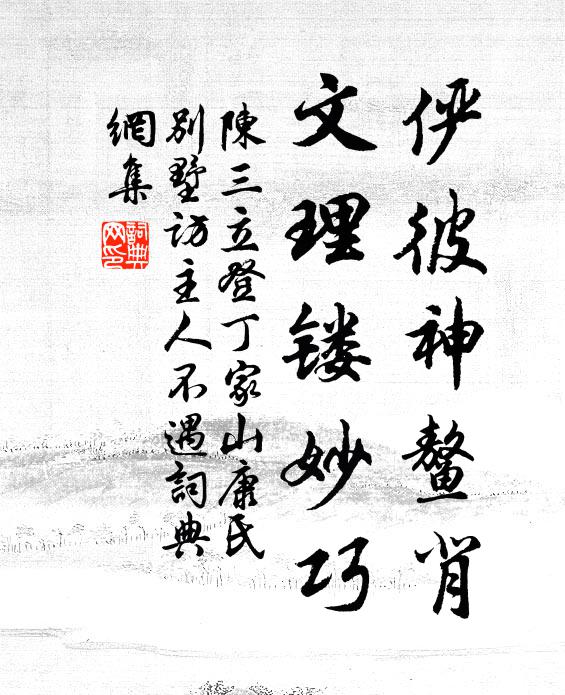 俨彼神鳌肖
文理镂妙巧
陳三立登丁家山康氏
别墅访主人不遇詞典
網集
詞典
网印